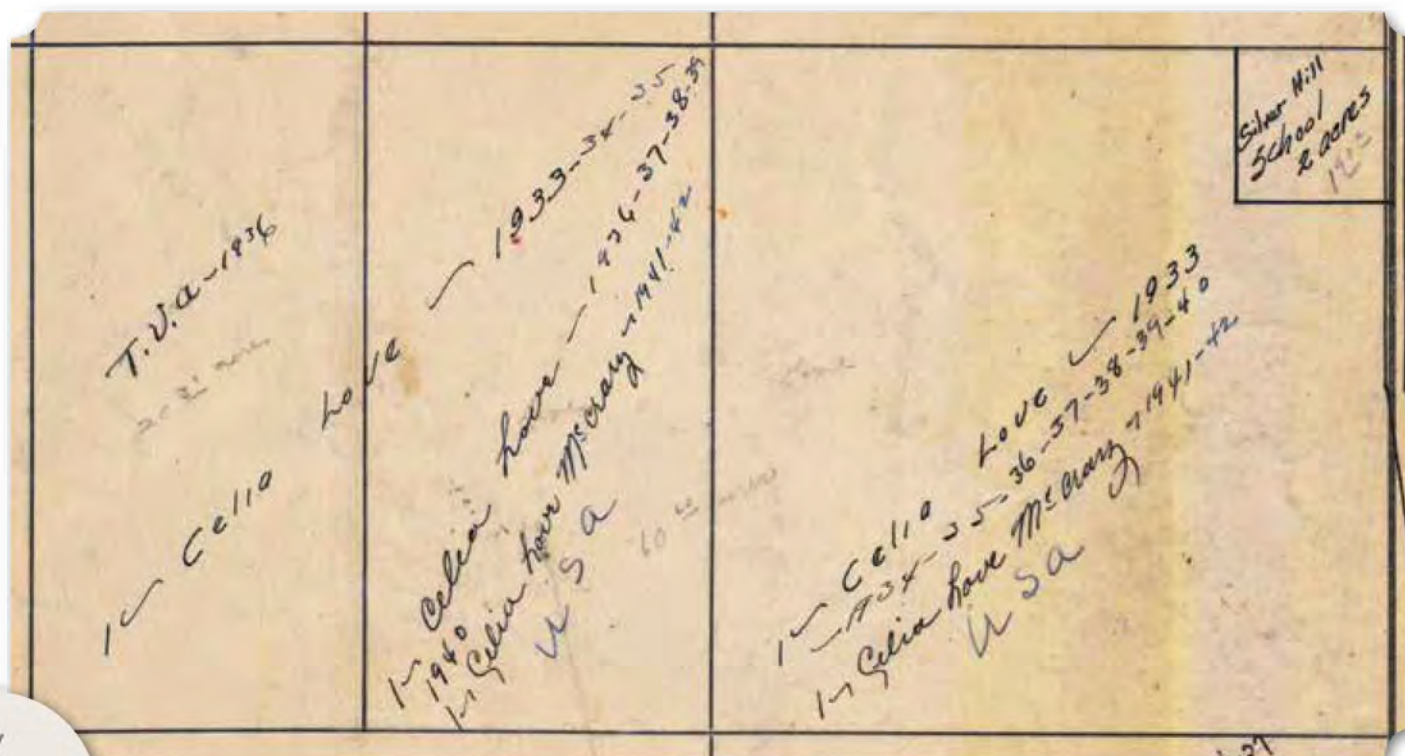 T.V.A - 1936
20
1 Celia Love - 1933-34-35
1 Celia Love - 1936-37-38-39
1940
1 Celia Love McCrary - 1941-42
USA
60
1 Celia Love - 1933
1934-35-36-37-38-39-40
1 Celia Love McCrary - 1941-42
USA
Silver Hill
School
2 acres